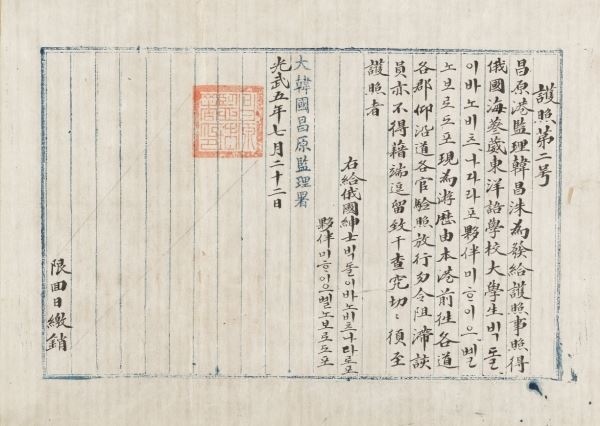 護照第二号
昌原港監理韓昌洙為發給護照事照得
俄國海蔘葳東洋語學校大學生빅돌
이바노비르나다라포夥伴미흐이으쎌
노보로도포現為游歷由本港前往各道
各郡仰沿道各官驗照放行勿令阻滯該
員亦不得藉端逗留致干查究切〻須至
護照者
右給俄國紳士빅돌이바노비르나다로포
夥伴미흐이으쎌노보로도포
大韓國昌原監理署
光武五年七月二十二日
限回日繳銷